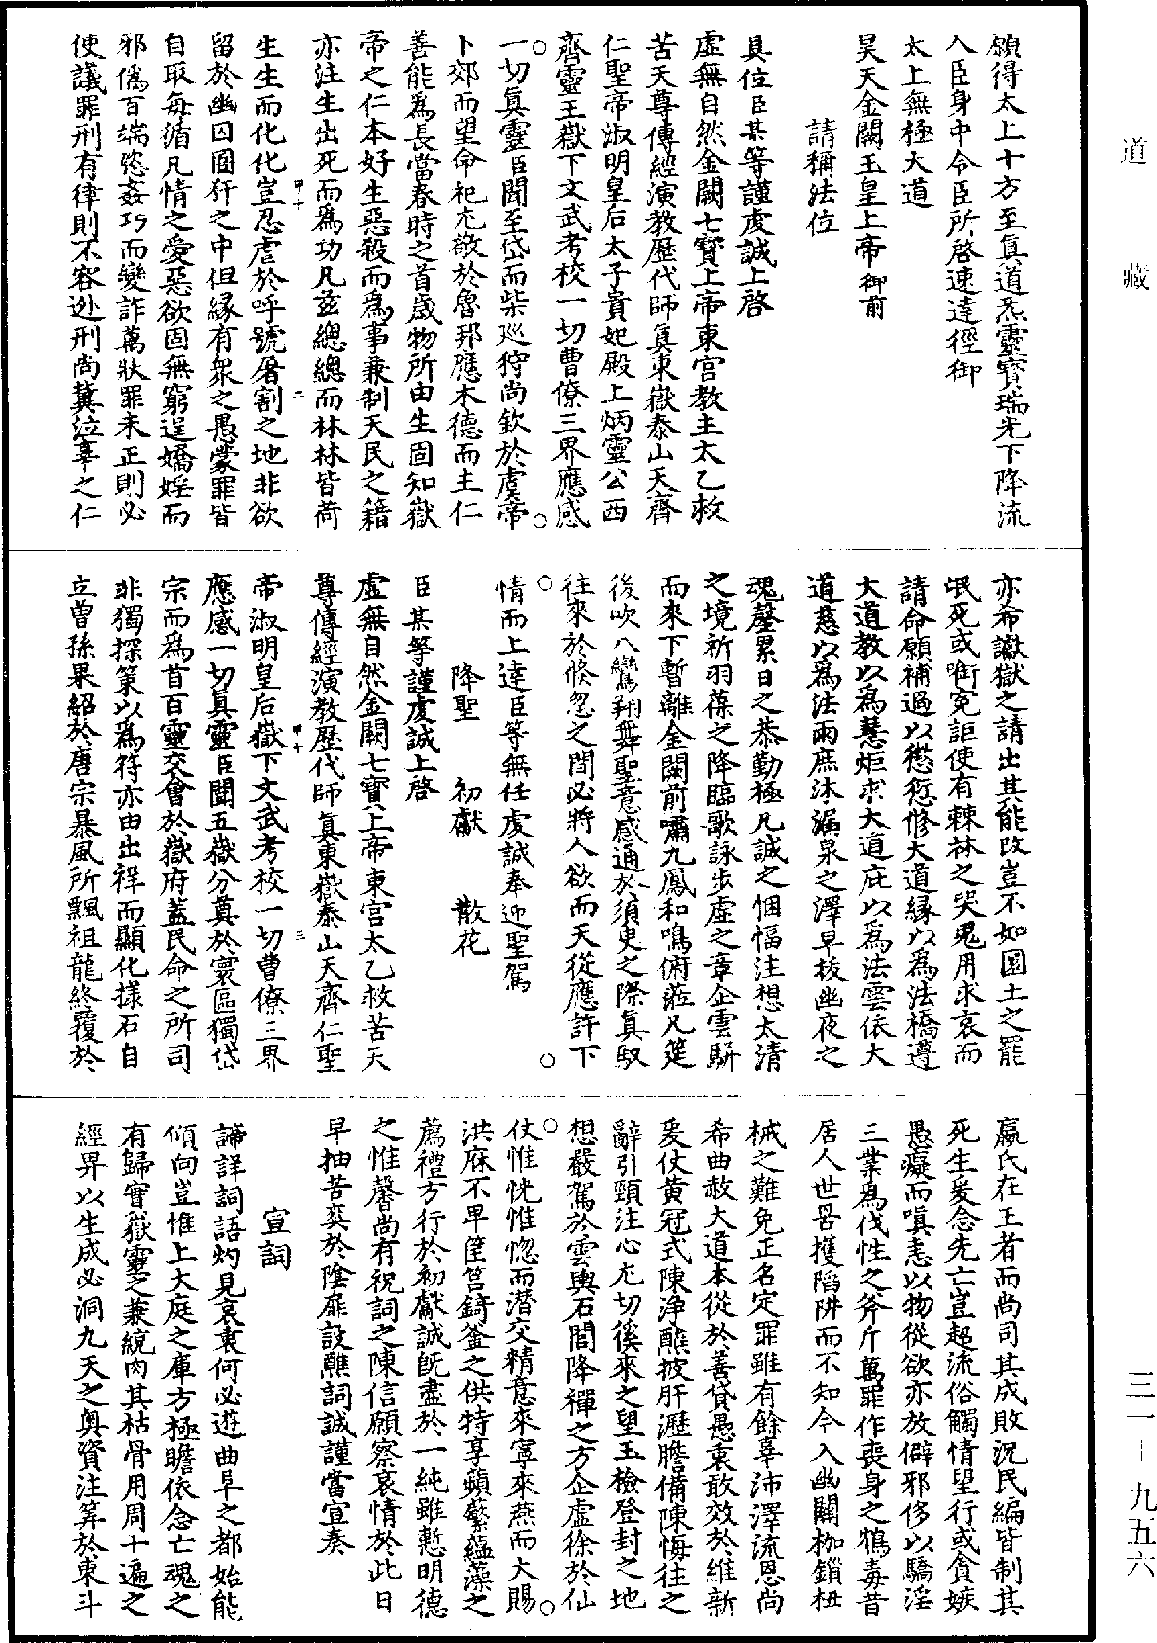 道藏
三一－九五六
領得太上十方至真道炁靈寶瑞光下降流
入臣身中令臣所啓速達徑御
太上無極大道
昊天金闕玉皇上帝御前
請稱法位
具位臣某等謹虔誠上啓
虛無自然金闕七寶上帝東宮教主太乙救
苦天尊傳經演教歷代師真東嶽泰山天齊
仁聖帝淑明皇后太子貴妃殿上炳靈公西
齊靈王嶽下文武考校一切曹僚三界應感
一切真靈臣聞至岱而柴巡狩尚欽於虞帝
卜郊而望命祀尤敬於魯邦應木德而主仁
善能爲長當春時之首歲物所由生固知嶽
帝之仁本好生惡殺而爲事兼制天民之籍
亦注生出死而爲功凡茲總總而林林皆荷
甲十
二
生生而化化豈忍虐於呼號屠割之地非欲
留於幽囚圄犴之中但緣有衆之愚蒙罪皆
自取每循凡情之愛惡欲固無窮逞嬌婬而
邪僞百端恣姦巧而變詐萬狀罪未正則必
使議罪刑有律則不容迯刑尚冀泣辜之仁
亦希讞獄之請出其能改豈不如圜土之罷
氓死或銜冤詎使有棘林之哭鬼用求哀而
請命願補過以懲愆修大道緣以爲法橋遵
大道教以爲慧炬求大道庇以爲法雲依大
道慈以爲法雨庶沐漏泉之澤早拔幽夜之
魂罄累日之恭勤極凡誠之悃愊注想太清
之境祈羽葆之降臨歌詠步虛之章企雲駢
而來下暫離金闕前嘯九鳳和鳴俯蒞凡筵
後吹八鸞翔舞聖意感通於須臾之際真馭
往來於倏忽之間必將人欲而天從應許下
情而上達臣等無任虔誠奉迎聖駕
降聖　初獻　散花
臣某等謹虔誠上啓
虛無自然金闕七寶上帝東宮太乙救苦天
尊傳經演教歷代師真東嶽泰山天齊仁聖
甲十
三
帝淑明皇后嶽下文武考校一切曹僚三界
應感一切真靈臣聞五嶽分奠於寰區獨岱
宗而爲首百靈交會於嶽府蓋民命之所司
非獨探策以爲符亦由出禪而顯化揉石自
立曾孫果紹於唐宗暴風所飄祖龍終覆於
嬴氏在王者而尚司其成敗況民編皆制其
死生爰念先亡豈超流俗觸情望行或貪嫉
愚癡而嗔恚以物從欲亦放僻邪侈以驕淫
三業爲伐性之斧斤萬罪作喪身之鴆毒昔
居人世罟擭陷阱而不知今入幽關枷鎖杻
械之難免正名定罪雖有餘辜沛澤流恩尚
希曲赦大道本從於善貸愚衷敢效於維新
爰仗黃冠式陳淨醮披肝瀝膽備陳悔往之
辭引頸注心尤切徯來之望玉檢登封之地
想嚴駕於雲輿石閭降禪之方企虛徐於仙
仗惟恍惟惚而潛交精意來寧來燕而大賜
洪庥不卑筐筥錡釜之供特享蘋蘩蘊藻之
薦禮方行於初獻誠旣盡於一純雖慙明德
之惟馨尚有祝詞之陳信願察哀情於此日
早抽苦爽於陰扉設醮詞誠謹當宣奏
宣詞
諦詳詞語灼見哀衷何必遊曲阜之都始能
傾向豈惟上大庭之庫方極瞻依念亡魂之
有歸實嶽靈之兼統肉其枯骨用周十遍之
經畀以生成必洞九天之奧資注筭於東斗